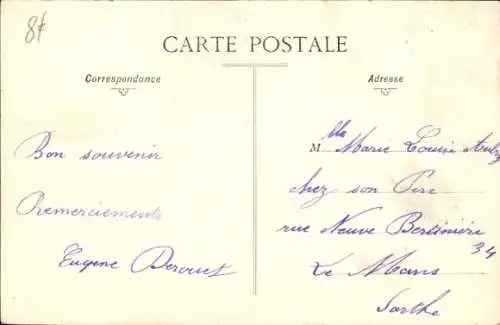 8f
CARTE POSTALE
Correspondance
Adresse
Bon souvenir
Remerciements
Eugene Derouet
Mlle Marie Louise Aubry
chez son Père
rue Neuve Bertinière
34
Le Mans
Sarthe